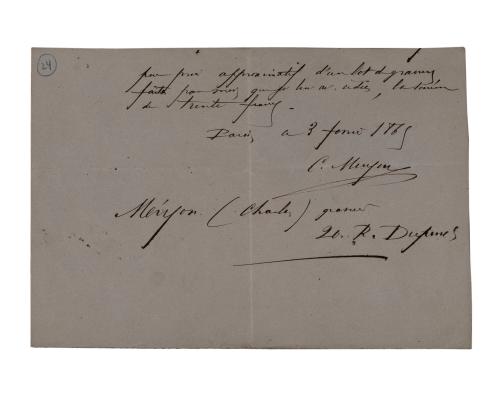 24
pour prix approximatif d'un lot de gravures
faites par moi, que je lui ai cédées, la somme
de trente francs.
Paris, ce 3 février 1865
C. Meryon
Méryon (Charles) graveur
20. R. Duperré